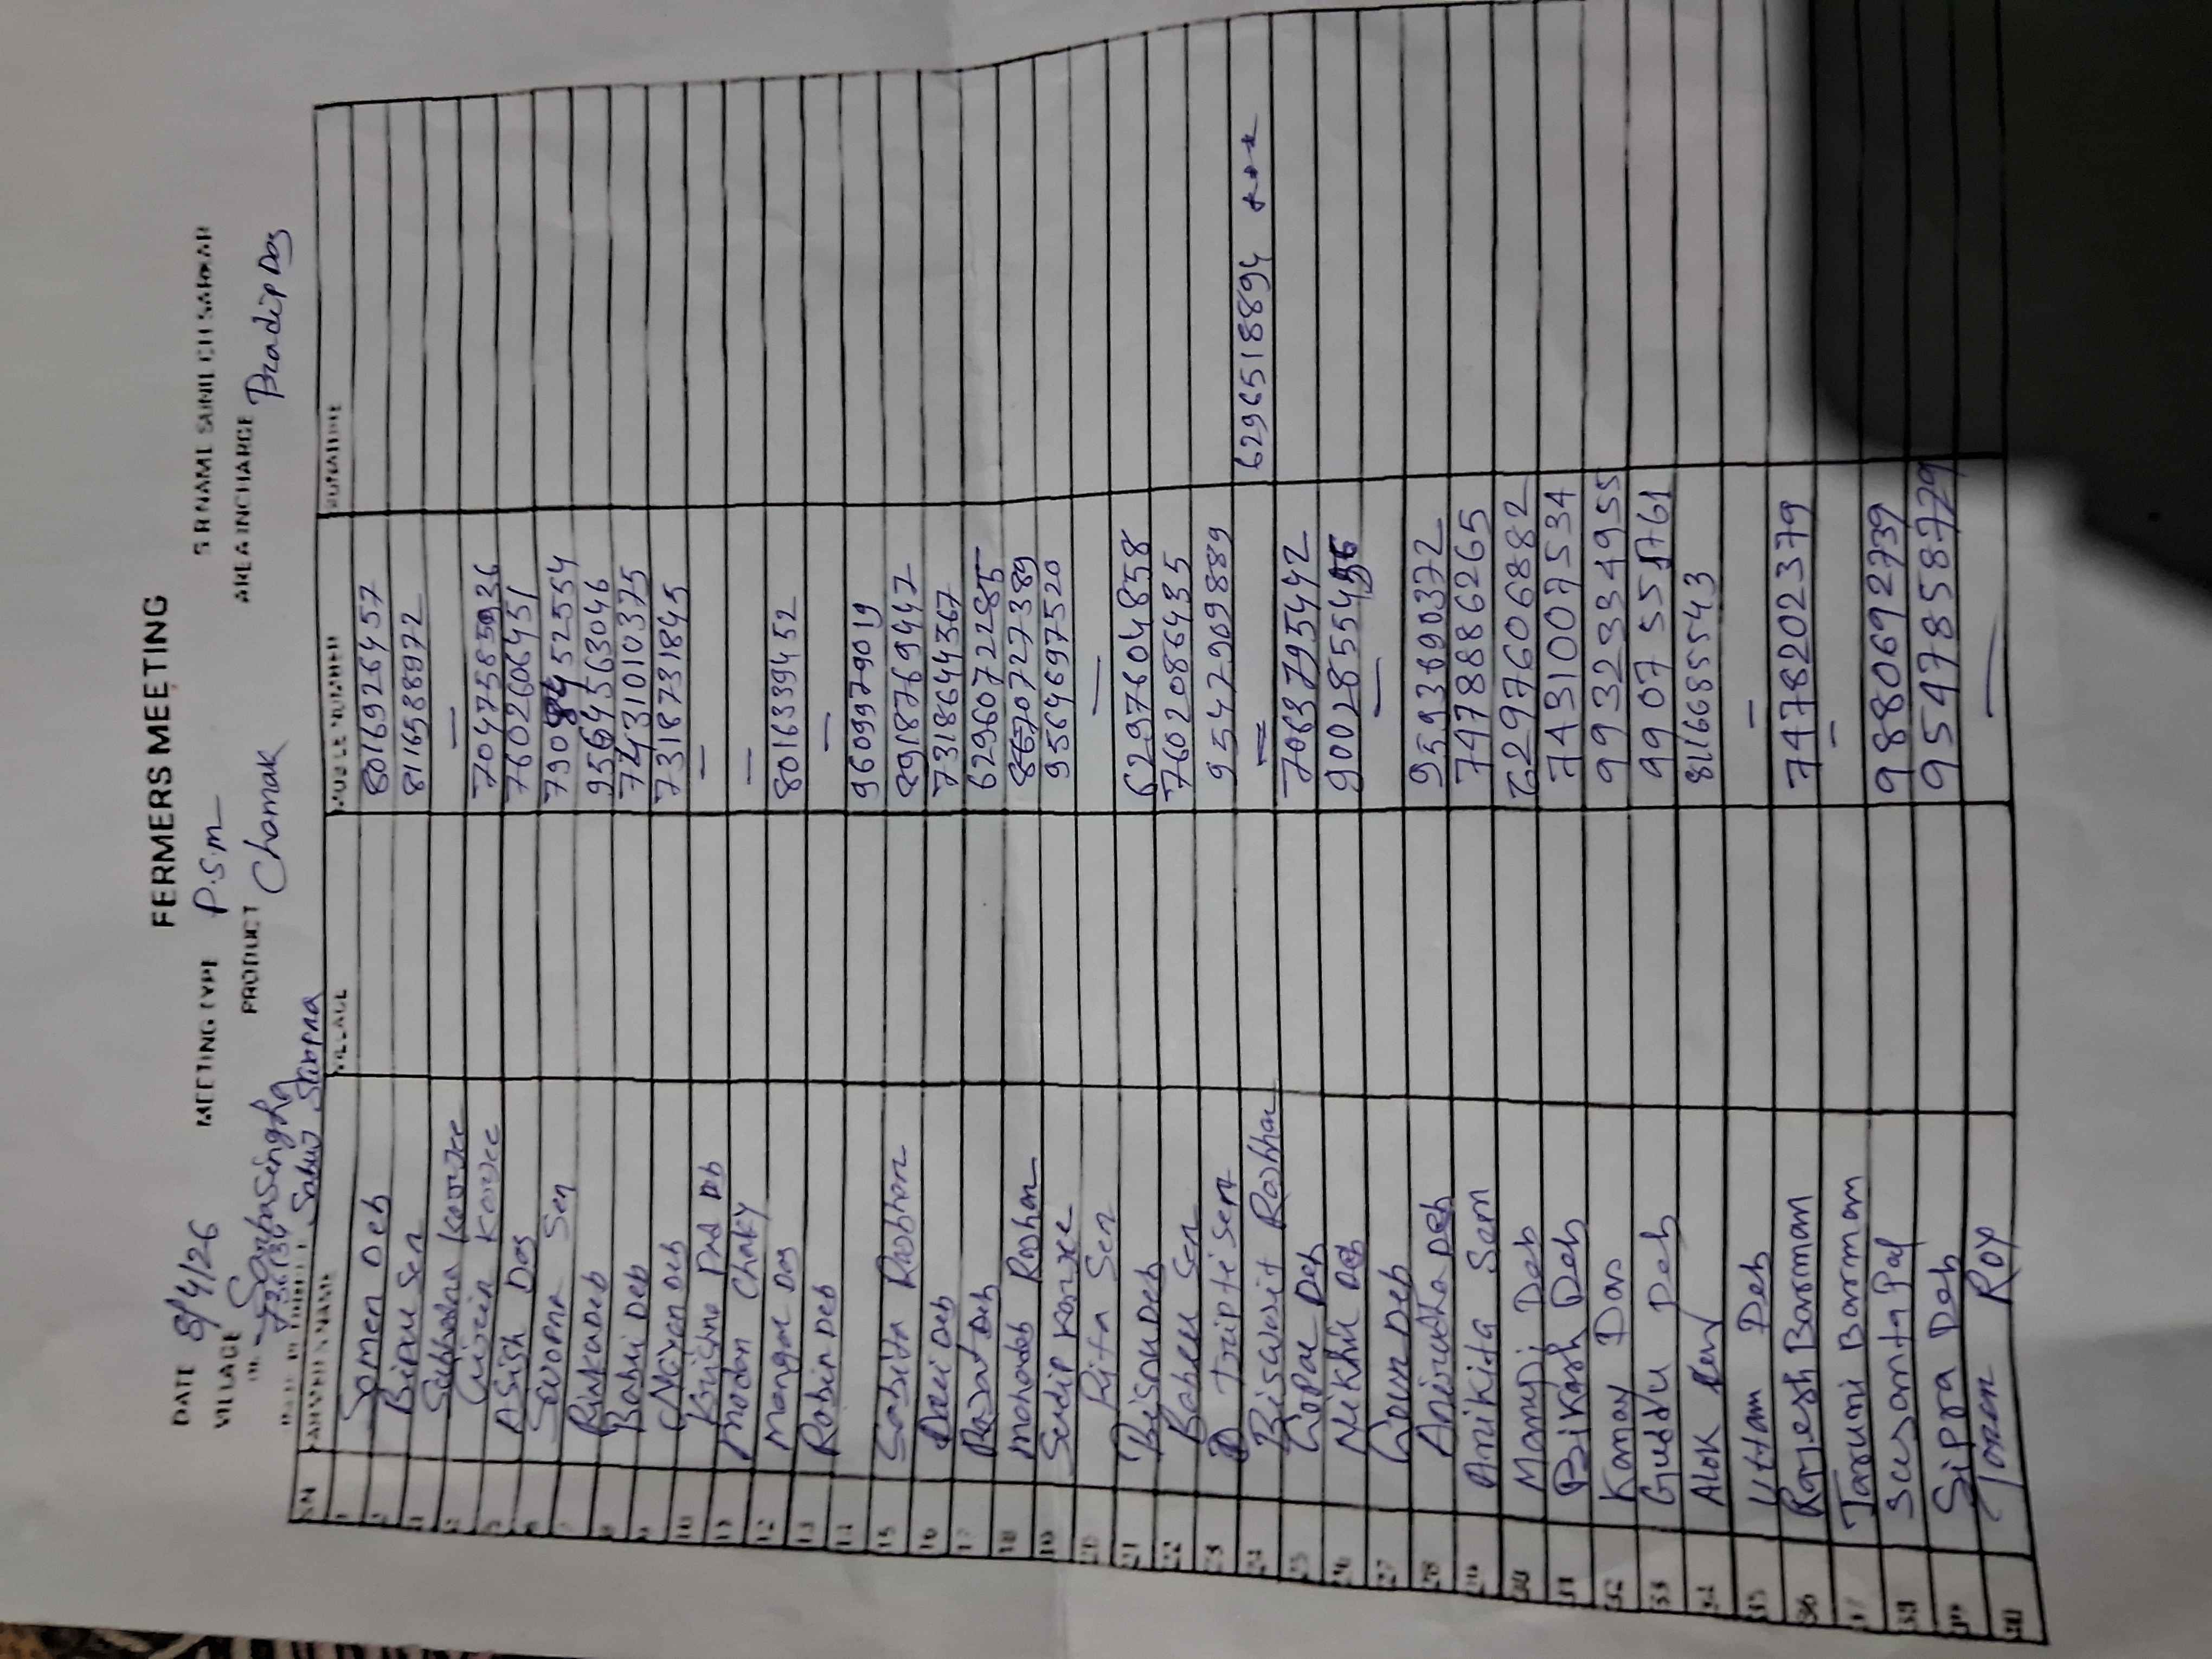 FERMERS MEETING
DATE 8/4/26 MEETING TYPE P.S.m S R NAME SUNIL CH SARKAR
VILLAGE Sonbasingha PRODUCT Chamak AREA INCHARGE Pradip Das
736134
SN FARMERS NAME VILLAGE MOBILE NUMBER
1 Somen Deb 8016926457
2 Bipu Sen 8116588972
3 Subhdra —
4
5 Asish Das 7602606451
6 Swopna Sen
7 Rinku Deb 9564563046
8 Babni Deb 7431010375
9 Nayan Deb 7318731845
10 Krishna Pad Deb —
11 Modon Chaky —
12 Mongal Das 8016339452
13 Robin Deb —
14 9609979019
15 Sabita Rabhan 8918769447
16 Deb 7318644367
17 Rajat Deb 6296072285
18 Mohondeb Rabhan 8670727389
19 Sudip 9564697520
20 Rita Sen —
21 Bison Deb 6297604858
22 Babeu Sen 7602086435
23 Tripti Sen 9547209889
24 Biswasit Rabhan = 6296518894
25 Gopal Deb 7063795442
26 Nikhil Deb
27 Gour Deb —
28 Anirudha Deb 9593690372
29 Ankita Sen 7478886265
30 Manoj Deb 6297606882
31 Bikash Deb 7431007534
32 Kamay Das 9932934955
33 Guddu Deb
34 Alok 8116685543
35 Uttam Deb —
36 Rajesh Barman 7478202379
37 Taruni Barman —
38 Susanta Pal 9880692739
39 Sipra Deb 9547858729
40 Roy —